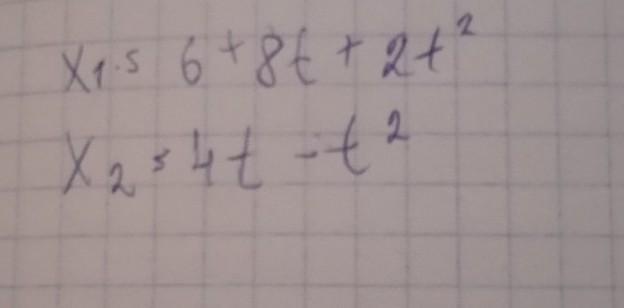 x₁ = 6 + 8t + 2t²
x₂ = 4t - t²